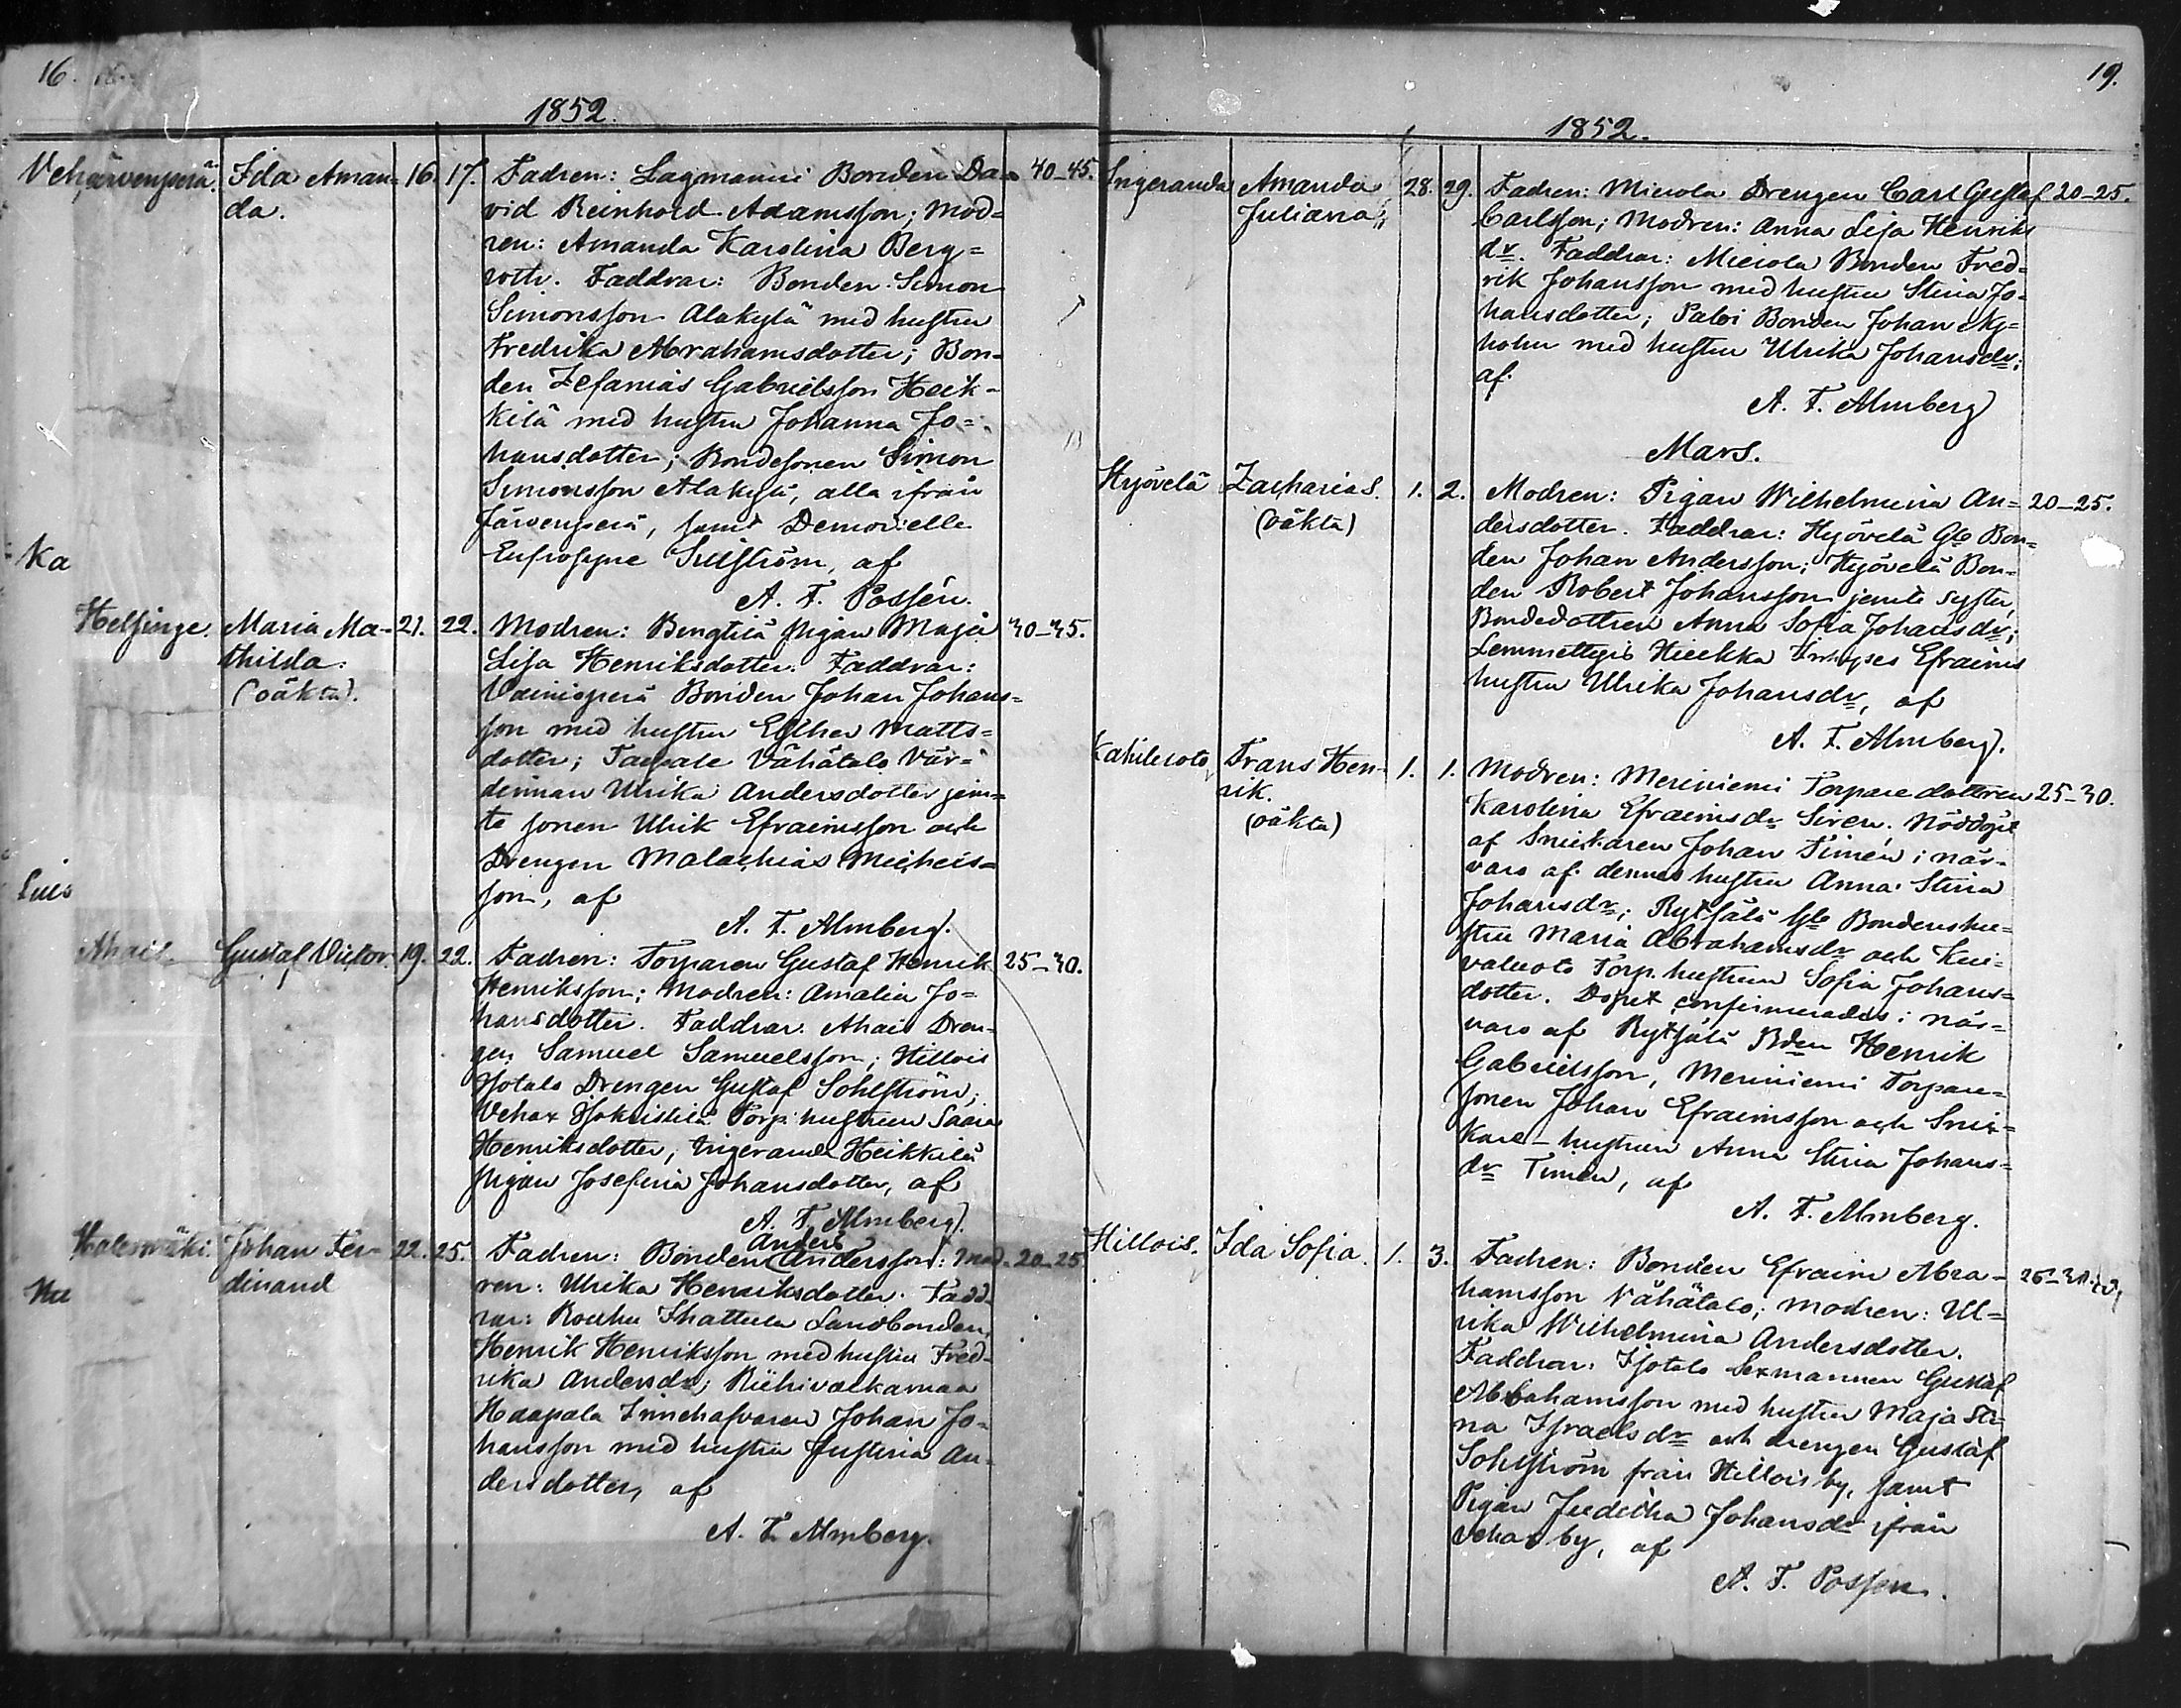 16.
1852.
Vehärvenperä. Ida Aman- 16. 17. Fadren: Lagmanni Bonden Da- 40-45.
da. vid Reinhold Adamsson; Mod=
ren: Amanda Karolina Berg=
roth. Faddrar: Bonden Simon
Simonsson Alakylä med hustru
Fredrika Abrahamsdotter; Bon-
den Zefanias Gabrielsson Heik-
kilä med hustru Johanna Jo=
hansdotter; Bondesonen Simon
Simonsson Alakylä, alla ifrån
Järvenperä, samt Demoiselle
Ka Eufrosyne Sulström, af
A. F. Possén.
Helsinge. Maria Ma- 21. 22. Modren: Bengtilä pigan Maja 30-35.
thilda. Lisa Henriksdotter. Faddrar:
(oäkta). Vainiopera Bonden Johan Johans=
son med hustru Esther Matts=
dotter; Vähätalo Vär-
dinnan Ulrika Andersdotter jem=
te sonen Ulrik Efraimsson och
Drengen Malachias Michels=
son, af
A. F. Almberg.
Ahais. Gustaf Victor. 19. 22. Fadren: Torparen Gustaf Henrik 25-30.
Henriksson; Modren: Amalia Jo=
hansdotter. Faddrar: Ahais Dren-
gen Samuel Samuelsson; Hillois
Isotalo Drengen Gustaf Sohlström;
Vehax Torp. hustrun Saara
Henriksdotter, Ingeranda Heikkilä
pigan Josefina Johansdotter, af
A. F. Almberg.
Anders
Johan Fer- 22. 25. Fadren: Bonden Andersson; Mod- 20-25
dinand ren: Ulrika Henriksdotter. Fadd-
rar: Rouhu Landbonden
Henrik Henriksson med hustru Fred-
rika Andersdr; Riihivalkamaa
Haapala Innehafvaren Johan Jo-
hansson med hustru Justina An-
dersdotter, af
A. F. Almberg.
19.
1852.
Ingeranda Amanda 28. 29. Fadren: Mierola Drengen Carl Gustaf 20-25.
Juliana Carlsson; Modren: Anna Lisa Henriks
dr. Faddrar: Mierola Bonden Fred-
rik Johansson med hustru Stina Jo-
hansdotter; Palvi Bonden Johan Ny=
holm med hustru Ulrika Johansdr;
af
A. F. Almberg
Mars.
Hyövelä Zacharias. 1. 2. Modren: Pigan Wilhelmina An- 20-25.
(oäkta) dersdotter. Faddrar: Hyövelä Gle Bon-
den Johan Andersson; Hyövelä Bon-
den Robert Johansson jemte syster,
Bondedottren Anna Sofia Johansdr;
Efraims
hustru Ulrika Johansdr, af
A. F. Almberg.
Kahiluoto Frans Hen- 1. 1. Modren: Meriniemi Torparedottren 25-30.
rik. Karolina Efraimsdr Siren. Nöddöpt
(oäkta) af Snickaren Johan Timén i när-
varo af dennes hustru Anna Stina
Johansdr; Rytsälä Gle Bondenshu-
stru Maria Abrahamsdr och Kui-
valuoto Torp. hustrun Sofia Johans=
dotter. Dopet confirmerades i när-
varo af Rytsälä Bden Henrik
Gabrielsson, Meriniemi Torpare-
sonen Johan Efraimsson och Snic-
kare-hustrun Anna Stina Johans-
dr Timén, af
A. F. Almberg.
Hillois. Ida Sofia. 1. 3. Fadren: Bonden Efraim Abra-
hamsson Vähätalo; Modren: Ul=
rika Wilhelmina Andersdotter.
Faddrar: Isotalo Sexmannen Gustaf
Abrahamsson med hustru Maja Sti-
na Israelsdr och drengen Gustaf
Sohlström från Hillois by, samt
Pigan Juditha Johansdr ifrån
Vehax by, af
A. F. Possén.